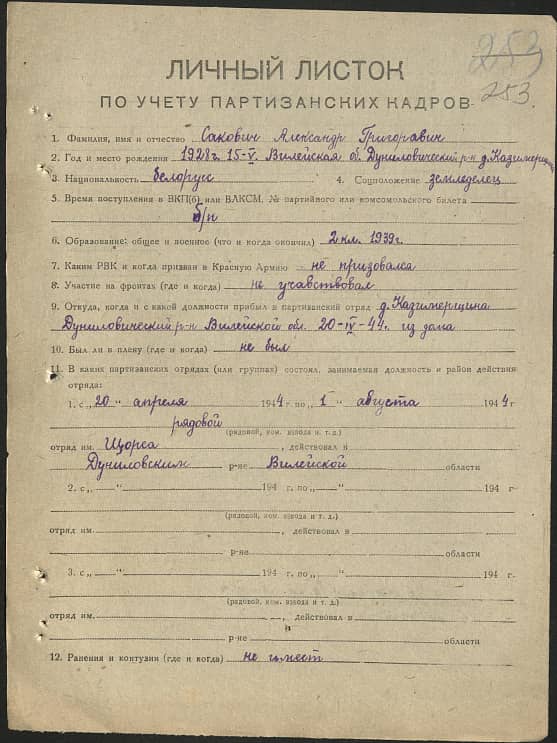 253
253.
ЛИЧНЫЙ ЛИСТОК
ПО УЧЕТУ ПАРТИЗАНСКИХ КАДРОВ
1. Фамилия, имя и отчество Сакович Александр Григоравич
2. Год и место рождения 1928г. 15-V. Вилейская об. Дуниловический р-н д. Казимерщина
3. Национальность белорус 4. Соцположение земледелец
5. Время поступления в ВКП(б) или ВЛКСМ, № партийного или комсомольского билета
б/п
6. Образование: общее и военное (что и когда окончил) 2 кл. 1939г.
7. Каким РВК и когда призван в Красную Армию не призовался
8. Участие на фронтах (где и когда) не учавствовал
9. Откуда, когда и с какой должности прибыл в партизанский отряд д. Казимерщина
Дуниловический р-н Вилейской обл. 20-IV-44г. из дома
10. Был ли в плену (где и когда) не был
11. В каких партизанских отрядах (или группах) состоял, занимаемая должность и район действия
отряда:
1. с „20" апреля 1944 г. по „1" августа 1944 г.
рядовой
(рядовой, ком. взвода и т. д.)
отряд им. Щорса, действовал в
Дуниловским р-не Вилейской области
2. с „ " 194 г. по „ " 194 г.
(рядовой, ком. взвода и т. д.)
отряд им. , действовал в
р-не области
3. с „ " 194 г. по „ " 194 г.
(рядовой, ком. взвода и т. д.)
отряд им. , действовал в
р-не области
12. Ранения и контузии (где и когда) не имеет